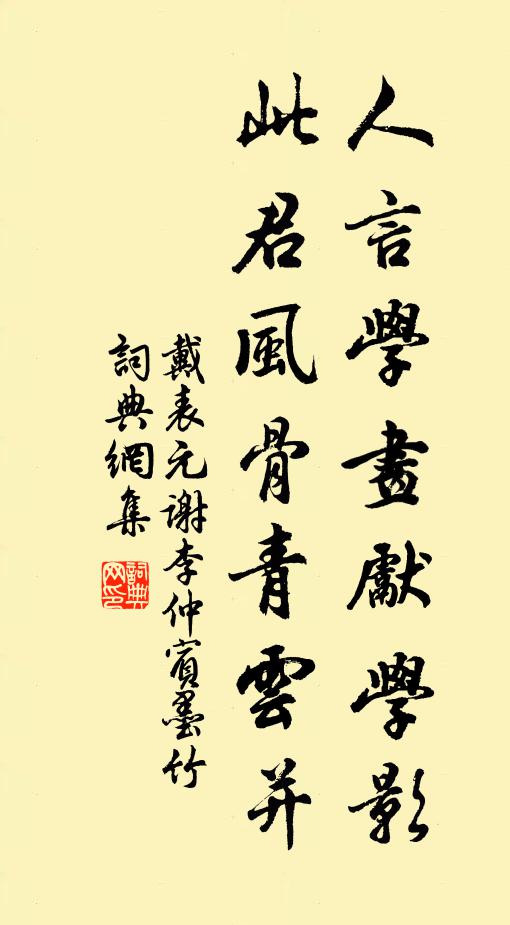 人言學畫獻學影
此君風骨青雲并
戴表元謝李仲賓墨竹
詞典網集
詞典網印